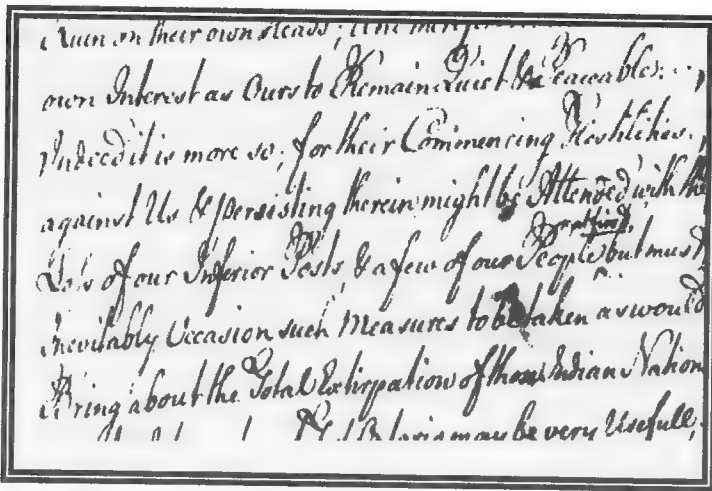 Ruin on their own Heads;
own Interest as Ours to Remain Quiet & Peaceable:
Indeed it is more so; for their Commencing Hostilities
against Us & persisting therein might be Attended with the
Loss of our Inferior Posts, & a few of our People but must
at first
inevitably Occasion such Measures to be taken as would
Bring about the Total Extirpation of those Indian Nation
may be very Usefull,